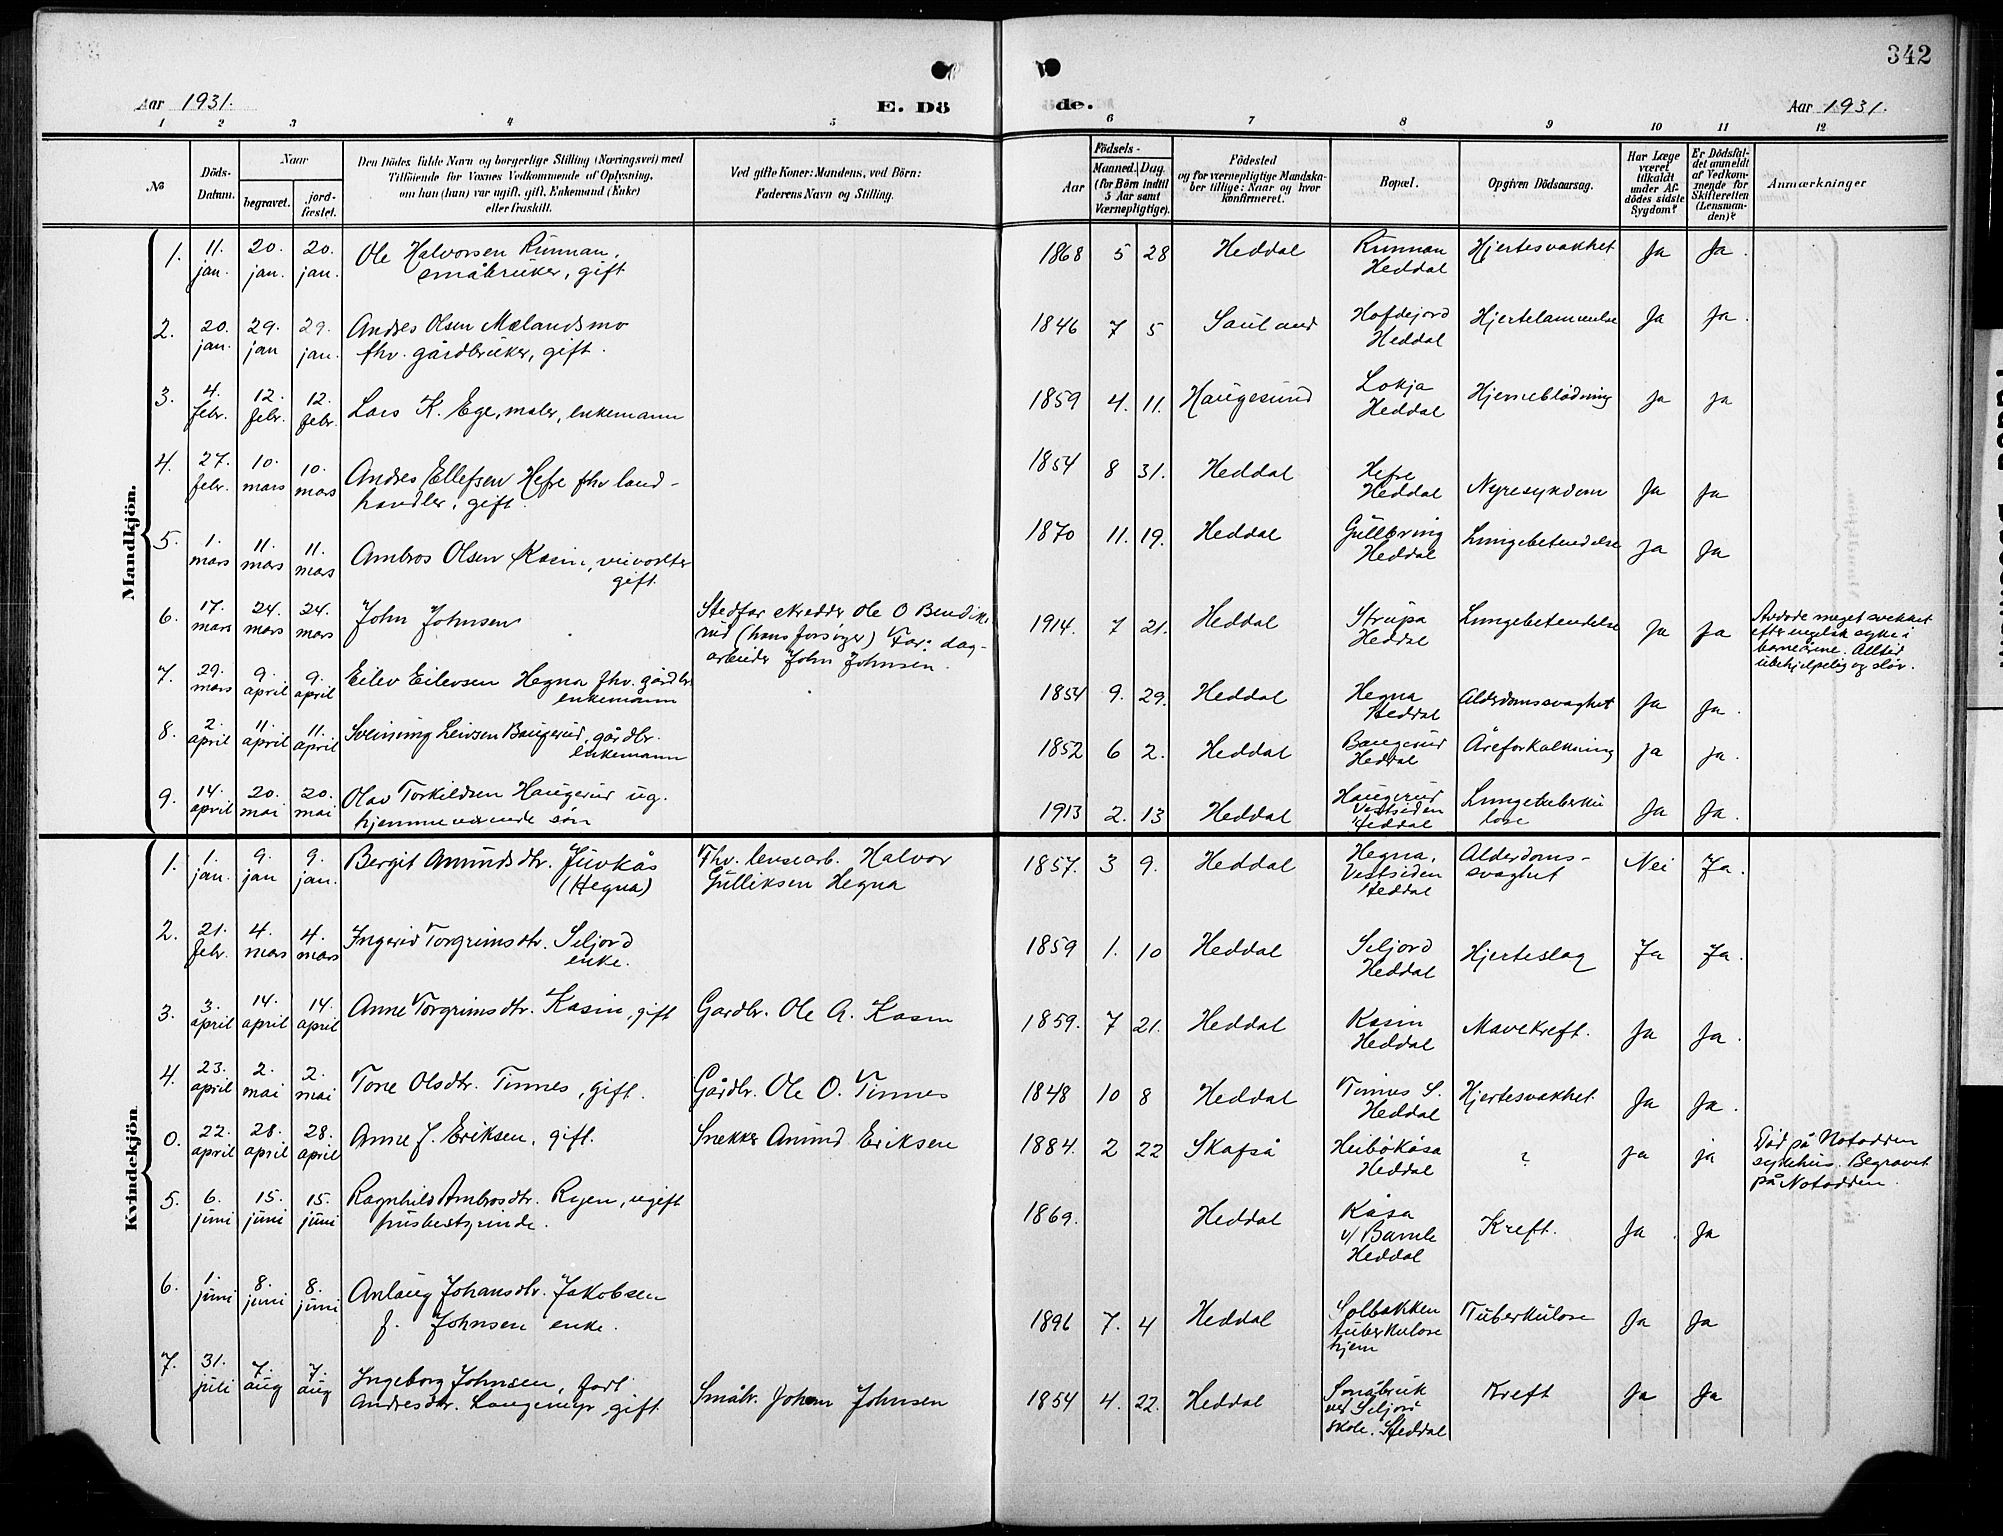 342
Aar 1931.
E. Dö
de.
Aar 1931.
1 2 3 4 5 6 7 8 9 10 11 12
№
Döds-
Datum.
Naar
begravet.
jord-
fæstet.
Den Dödes fulde Navn og borgerlige Stilling (Næringsvei) med
Tilföiende for Voxnes Vedkommende af Oplysning,
om han (hun) var ugift, gift, Enkemand (Enke)
eller fraskilt.
Ved gifte Koner: Mandens, ved Börn:
Faderens Navn og Stilling.
Födsels-
Aar
Maaned. Dag.
(for Börn indtil
5 Aar samt
Værnepligtige).
Födested
og for værnepligtige Mandska-
ber tillige: Naar og hvor
konfirmeret.
Bopæl.
Opgiven Dödsaarsag.
Har Læge
været
tilkaldt
under Af-
dödes sidste
Sygdom?
Er Dödsfal-
det anmeldt
af Vedkom-
mende for
Skifteretten
(Lensman-
den)?
Anmærkninger
Mandkjön.
1. 11. jan. 20. jan. 20. jan. Ole Halvorsen Runnan,
småbruker, gift
1868 5 28 Heddal Runnan
Heddal Hjertesvakhet Ja Ja.
2. 20. jan. 29. jan 29. jan. Andres Olsen Mælandsmo
fhv. gårdbruker, gift.
1846 7 5 Sauland Hofdejord
Heddal Hjertelammelse Ja Ja.
3. 4. febr. 12. febr. 12. febr. Lars K. Ege, maler, enkemann
1859 4. 11. Haugesund Lokja
Heddal Hjerneblödning ja ja
4. 27. febr. 10. mars 10. mars Andres Ellefsen Hefre fhv land-
handler, gift.
1854 8 31. Heddal Hefre
Heddal Nyresykdom Ja Ja
5. 1. mars 11. mars 11. mars Ambros Olsen Kasin, veivokter
gift.
1870 11. 19. Heddal Gullbring
Heddal Lungebetendelse Ja Ja
6. 17. mars 24. mars 24. mars John Johnsen
Stedfar skredder Ole O Bendik-
rud (hans forsörger) Far: dag-
arbeider John Johnsen.
1914. 7 21. Heddal Strupa
Heddal Lungebetendelse Ja ja
Avdöde meget svekket
efter engelsk syke i
barneårene. Alltid
ubehjelpelig og slöv.
7. 29. mars 9. april 9. april Eilev Eilevsen Hegna fhv. gårdbr
enkemann
1854 9. 29. Heddal Hegna
Heddal Alderdomssvaghet Ja Ja.
8. 2. april 11. april 11. april Sveinung Leivsen Baugerud, gårdbr.
enkemann
1852 6 2. Heddal Baugerud
Heddal Åreforkalkning ja ja.
9. 14. april 20. mai 20. mai Olav Torkildsen Haugerud ug.
hjemmeværende sön
1913 2. 13 Heddal Haugerud
Vestsiden
Heddal Lungetuberku
lose Ja Ja.
Kvindekjön
1. 1. jan. 9. jan 9. jan. Bergit Amundsdtr. Juvkås
(Hegna)
Fhv. lensearb. Halvor
Gulliksen Hegna
1857. 3 9. Heddal Hegna,
Vestsiden
Heddal Alderdoms-
svaghet Nei Ja.
2. 21. febr. 4. mars 4. mars Ingerid Torgrimsdtr. Seljord
enke.
1859 1. 10 Heddal Seljord
Heddal Hjerteslag Ja Ja.
3. 3. april 14. april 14. april Anne Torgrimsdtr. Kasin, gift
Gardbr. Ole A. Kasin
1859. 7 21. Heddal Kasin
Heddal Mavekreft. Ja Ja.
4. 23. april 2. mai 2. mai Tone Olsdtr. Tinnes, gift.
Gårdbr. Ole O. Tinnes
1848 10 8 Heddal Tinnes S.
Heddal Hjertesvakhet Ja Ja.
0. 22. april 28. april 28. april Anne J. Eriksen, gift.
Snekker Amund Eriksen
1884. 2 22 Skafså Heibökåsa
Heddal ? ja ja
Död på Notodden
sykehus. Begravet
på Notodden.
5. 6. juni 15. juni 15. juni Ragnhild Ambrosdtr. Ryen, ugift
husbestyrende.
1869. Heddal Kåsa
v/ Bamle
Heddal Kreft. Ja Ja
6. 1. juni 8. juni 8. juni Anlaug Johansdtr. Jakobsen
f. Johnsen enke.
1896 7. 4 Heddal Solbakken
tuberkulose
hjem Tuberkulose Ja Ja
7. 31. juli 7. aug 7. aug Ingeborg Johnsen,
Andresdtr. Langemyr, gift
Småbr. Johan Johnsen
1854 4. 22. Heddal Småbruk
ved Seljord
skole. Heddal Kreft Ja Ja